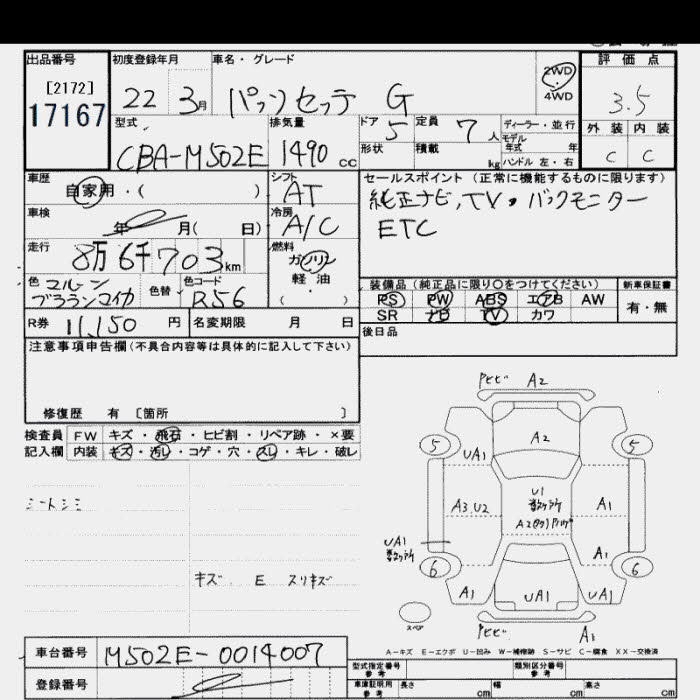 出品番号 初度登録年月 車名・グレード 2WD・4WD 評価点
[2172]
17167 22 3月 パッソセッテ G 3.5
型式 排気量 ドア 定員 ディーラー・並行 外装 内装
CBA-M502E 1490 cc 5 7人 モデル年式 年 C C
形状 積載 kg ハンドル 左・右
車歴 シフト セールスポイント (正常に機能するものに限ります)
自家用・( ) AT 純正ナビ,TV,バックモニター
車検 冷房 ETC
年 月( 日) A/C
走行 燃料
8万6千703km ガソリン
軽油
( ・ )
色 色替 色コード 装備品(純正品に限り○をつけてください) 新車保証書
マルーンブラウンマイカ R56 PS PW ABS エアB AW 有・無
SR ナビ TV カワ
R券 11,150 円 名変期限 月 日 後日品
注意事項申告欄(不具合内容等は具体的に記入して下さい)
修復歴 有 [箇所 ]
検査員 FW キズ・飛石・ヒビ割・リペア跡・×要
記入欄 内装 キズ・汚レ・コゲ・穴・スレ・キレ・破レ
シートシミ
キズ E スリキズ
A2
5 5
A2
UA1
U1
A3,U2 A1
UA1
A1
6 6
A1 UA1 UA1
スペア
A1
A-キズ E-エクボ U-凹み W-補修跡 S-サビ C-腐食 XX-交換済
車台番号 M502E-0014007
登録番号
型式指定番号 参考 類別区分番号 参考
車庫証明用 参考 長さ cm 幅 cm 高さ cm